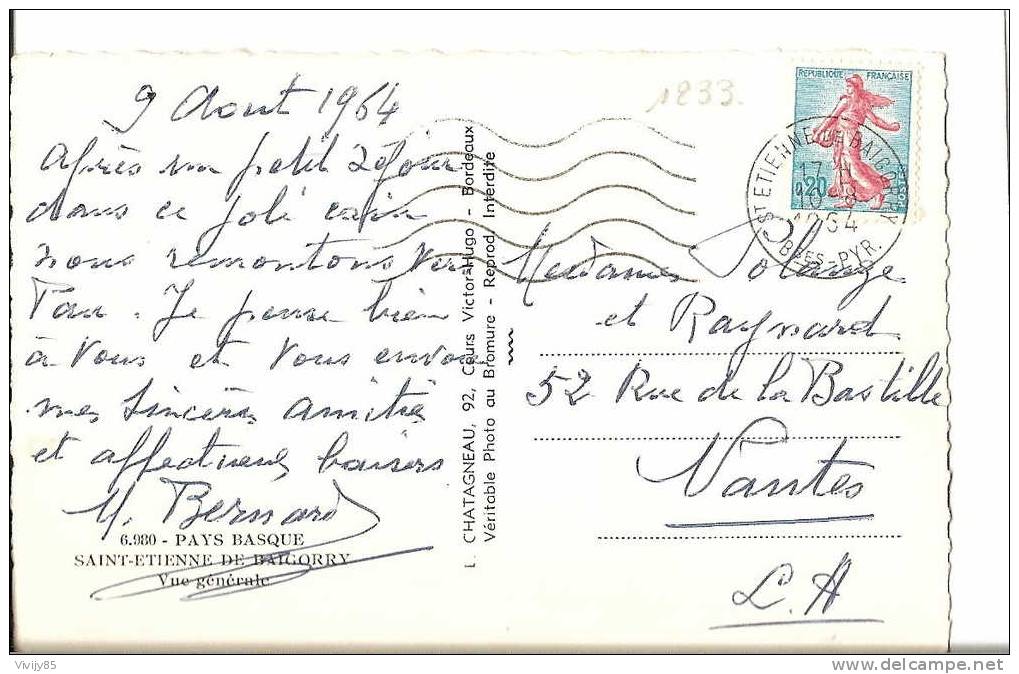 9 Aout 1964
Après un petit séjour
dans ce joli coin
nous remontons vers
Pau. Je pense bien
à vous et vous envoie
mes sincères amitiés
et affectueux baisers
M. Bernard
6.980 - PAYS BASQUE
SAINT-ETIENNE DE BAIGORRY
Vue générale
L. CHATAGNEAU, 92, Cours Victor-Hugo - Bordeaux
Véritable Photo au Bromure - Reprod. Interdite
1233.
REPUBLIQUE FRANÇAISE
0,20
ST ETIENNE DE BAIGORRY
17 H
10 - 8
1964
BSES-PYR.
Mesdames Solange
et Raymard
52 Rue de la Bastille
Nantes
L.A
Vivijy85
www.delcampe.net